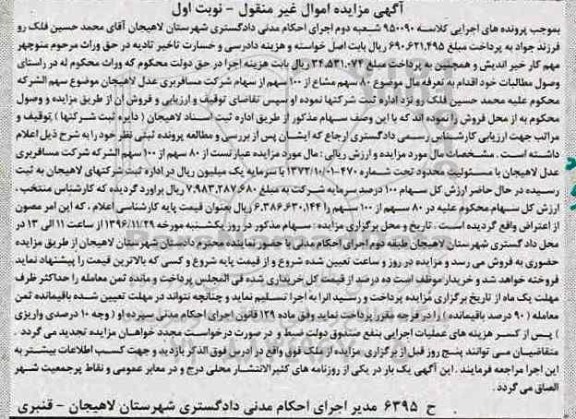 آگهی مزایده اموال غیر منقول - نوبت اول
بموجب پرونده های اجرایی کلاسه ۹۵۰۰۹۰ شعبه دوم اجرای احکام مدنی دادگستری شهرستان لاهیجان آقای محمد حسین فلک رو
فرزند جواد به پرداخت مبلغ ۶۹۰،۶۲۱،۴۹۵ ریال بابت اصل خواسته و هزینه دادرسی و خسارت تاخیر تادیه در حق وراث مرحوم منوچهر
مهم کار خیر اندیش و همچنین به پرداخت مبلغ ۳۴،۵۳۱،۰۷۴ ریال بابت هزینه اجرا در حق دولت محکوم که وراث محکوم له در راستای
وصول مطالبات خود اقدام به تعرفه مال موضوع ۸۰ سهم مشاع از ۱۰۰ سهم از سهام شرکت مسافربری عدل لاهیجان موضوع سهم الشرکه
محکوم علیه محمد حسین فلک رو نزد اداره ثبت شرکتها نموده او سپس تقاضای توقیف و ارزیابی و فروش آن از طریق مزایده و وصول
محکوم به از محل فروش را نموده اند که با این وصف سهام مذکور از طریق اداره ثبت اسناد لاهیجان ( دایره ثبت شرکتها ) ,توقیف و
مراتب جهت ارزیابی کارشناس رسمی دادگستری ارجاع که ایشان پس از بررسی و مطالعه پرونده ثبتی نظر خود را به شرح ذیل اعلام
داشته است . مشخصات مال مورد مزایده و ارزش ریالی : مال مورد مزایده عبارتست از ۸۰ سهم از ۱۰۰ سهم الشرکه شرکت مسافربری
عدل لاهیجان با مسئولیت محدود تحت شماره ۴۷۰-۱۳۷۳/۱۰/۰۱ با سرمایه یک میلیون ریال در اداره ثبت شرکتهای لاهیجان به ثبت
رسیده در حال حاضر ارزش کل سهام ۱۰۰ درصد سرمایه شرکت به مبلغ ۷،۹۸۳،۲۸۷،۶۸۰ ریال براورد گردیده که کارشناس منتخب ،
ارزش کل سهام محکوم علیه در ۸۰ سهم از ۱۰۰ سهم را ۶،۳۸۶،۶۳۰،۱۴۴ ریال بعنوان قیمت پایه کارشناسی اعلام . که این امر مصون
از اعتراض واقع گردیده است . تاریخ و محل برگزاری مزایده : سهام مذکور در روز یکشنبه مورخه ۱۳۹۶/۱۱/۲۹ از ساعت ۱۱ الی ۱۳ در
محل دادگستری شهرستان لاهیجان طبقه دوم اجرای احکام مدنی با حضور نماینده محترم دادستان شهرستان لاهیجان از طریق مزایده
حضوری به فروش می رسد و مزایده در روز و ساعت تعیین شده شروع و از قیمت پایه شروع و کسی که بالاترین قیمت را پیشنهاد نماید
فروخته خواهد شد و خریدار موظف است ده درصد از قیمت کل خریداری شده فی المجلس پرداخت و مانده ثمن معامله را حداکثر ظرف
مهلت یک ماه از تاریخ برگزاری مزایده پرداخت و رسید انرا به اجرا تسلیم نماید و چنانچه نتواند در مهلت تعیین شده باقیمانده ثمن
معامله ( ۹۰ درصد باقیمانده ) را در فرجه مقرر پرداخت نماید وفق ماده ۱۲۹ قانون اجرای احکام مدنی سپرده او ( وجه ۱۰ درصدی واریزی
) پس از کسر هزینه های عملیات اجرایی بنفع صندوق دولت ضبط و در صورت درخواست مجدد خواهان مزایده تجدید می گردد .
متقاضیان می توانند پنج روز قبل از برگزاری مزایده از ملک فوق واقع در آدرس فوق الذکر بازدید و جهت کسب اطلاعات بیشتر به
این اجرا مراجعه فرمایند . این آگهی یک بار در یکی از روزنامه های کثیرالانتشار محلی درج و در معابر عمومی و نقاط پرجمعیت شهر
الصاق می گردد .
ح ۶۳۹۵ مدیر اجرای احکام مدنی دادگستری شهرستان لاهیجان - قنبری